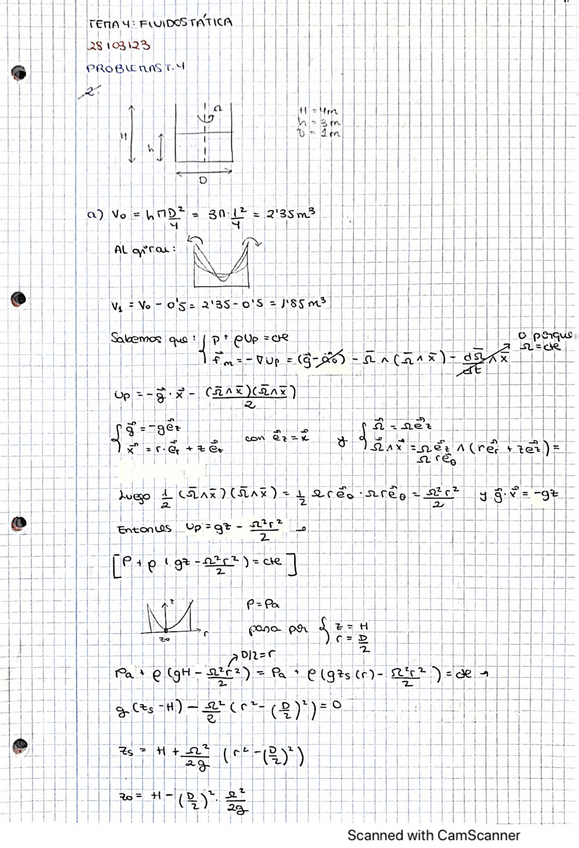 TEMA 4: FLUIDOSTÁTICA
28/03/23
PROBLEMAS T.4
2.
Ω
H
h
D
H = 4m
h = 3m
D = 1m
a) V₀ = h πD²/4 = 3π·1²/4 = 2'35 m³
Al girar:
V₁ = V₀ - 0'5 = 2'35 - 0'5 = 1'85 m³
Sabemos que: { p + ρUp = cte
0 porque Ω = cte
f⃗m = -∇Up = (g⃗ - a⃗₀) - Ω̄ ∧ (Ω̄ ∧ x̄) - dΩ̄/dt ∧ x̄
Up = -g⃗ · x⃗ - (Ω̄ ∧ x̄)(Ω̄ ∧ x̄)/2
{ g⃗ = -g e⃗z
x⃗ = r · e⃗r + z e⃗z
con e⃗z = k⃗ y
{ Ω⃗ = Ω e⃗z
Ω⃗ ∧ x⃗ = Ω e⃗z ∧ (r e⃗r + z e⃗z) =
Ω r e⃗θ
Luego 1/2 (Ω̄ ∧ x̄)(Ω̄ ∧ x̄) = 1/2 Ω r e⃗θ · Ω r e⃗θ = Ω²r²/2 y g⃗ · x⃗ = -gz
Entonces Up = gz - Ω²r²/2 →
[P + ρ (gz - Ω²r²/2) = cte]
z
r
z₀
P = Pa
para por { z = H
r = D/2
D/2 = r
Pa + ρ (gH - Ω²r²/2) = Pa + ρ (g zs (r) - Ω²r²/2) = cte →
g (zs - H) - Ω²/2 (r² - (D/2)²) = 0
zs = H + Ω²/2g (r² - (D/2)²)
z₀ = H - (D/2)² · Ω²/2g
Scanned with CamScanner